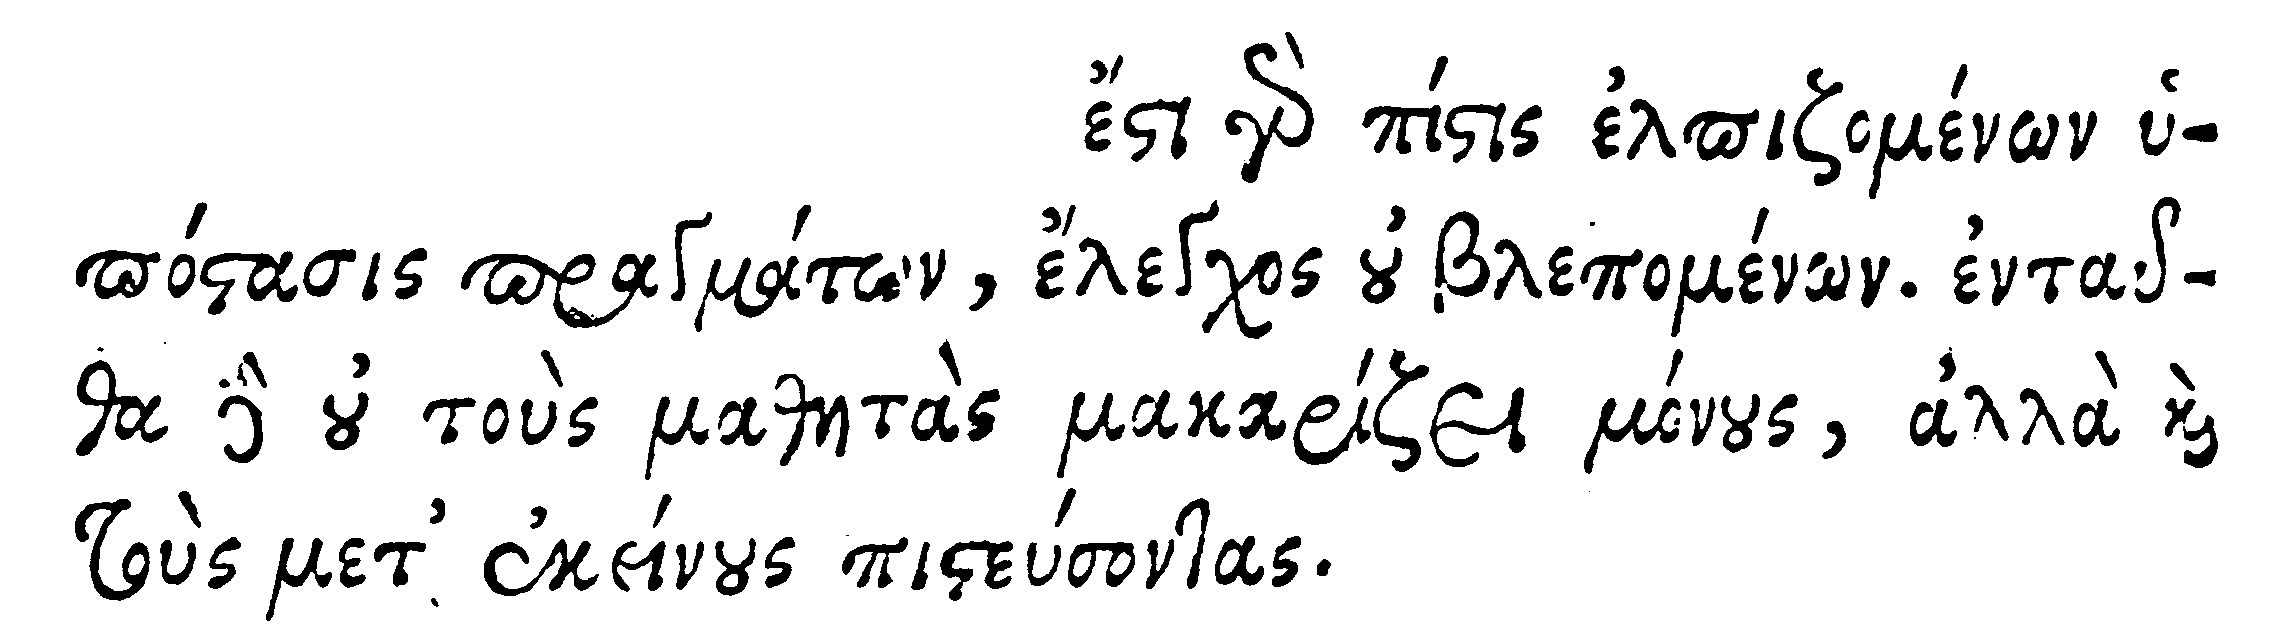 ἔστι γὰρ πίστις ἐλπιζομένων ὑ-
πόστασις πραγμάτων, ἔλεγχος οὐ βλεπομένων. ἐνταῦ-
θα δὲ οὐ τοὺς μαθητὰς μακαρίζει μόνους, ἀλλὰ καὶ
τοὺς μετ᾽ ἐκείνους πιστεύσοντας.